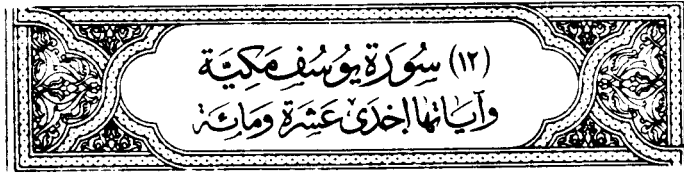 (١٢) سُورَة يُوسُف مَكِيَّة
وَآيَاتهَا إِحْدَى عَشِرَة وَمَائِة